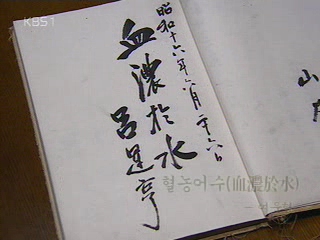 KBS1
昭和十六年六月二十六日
血濃於水
呂運亨
山
혈농어수(血濃於水)